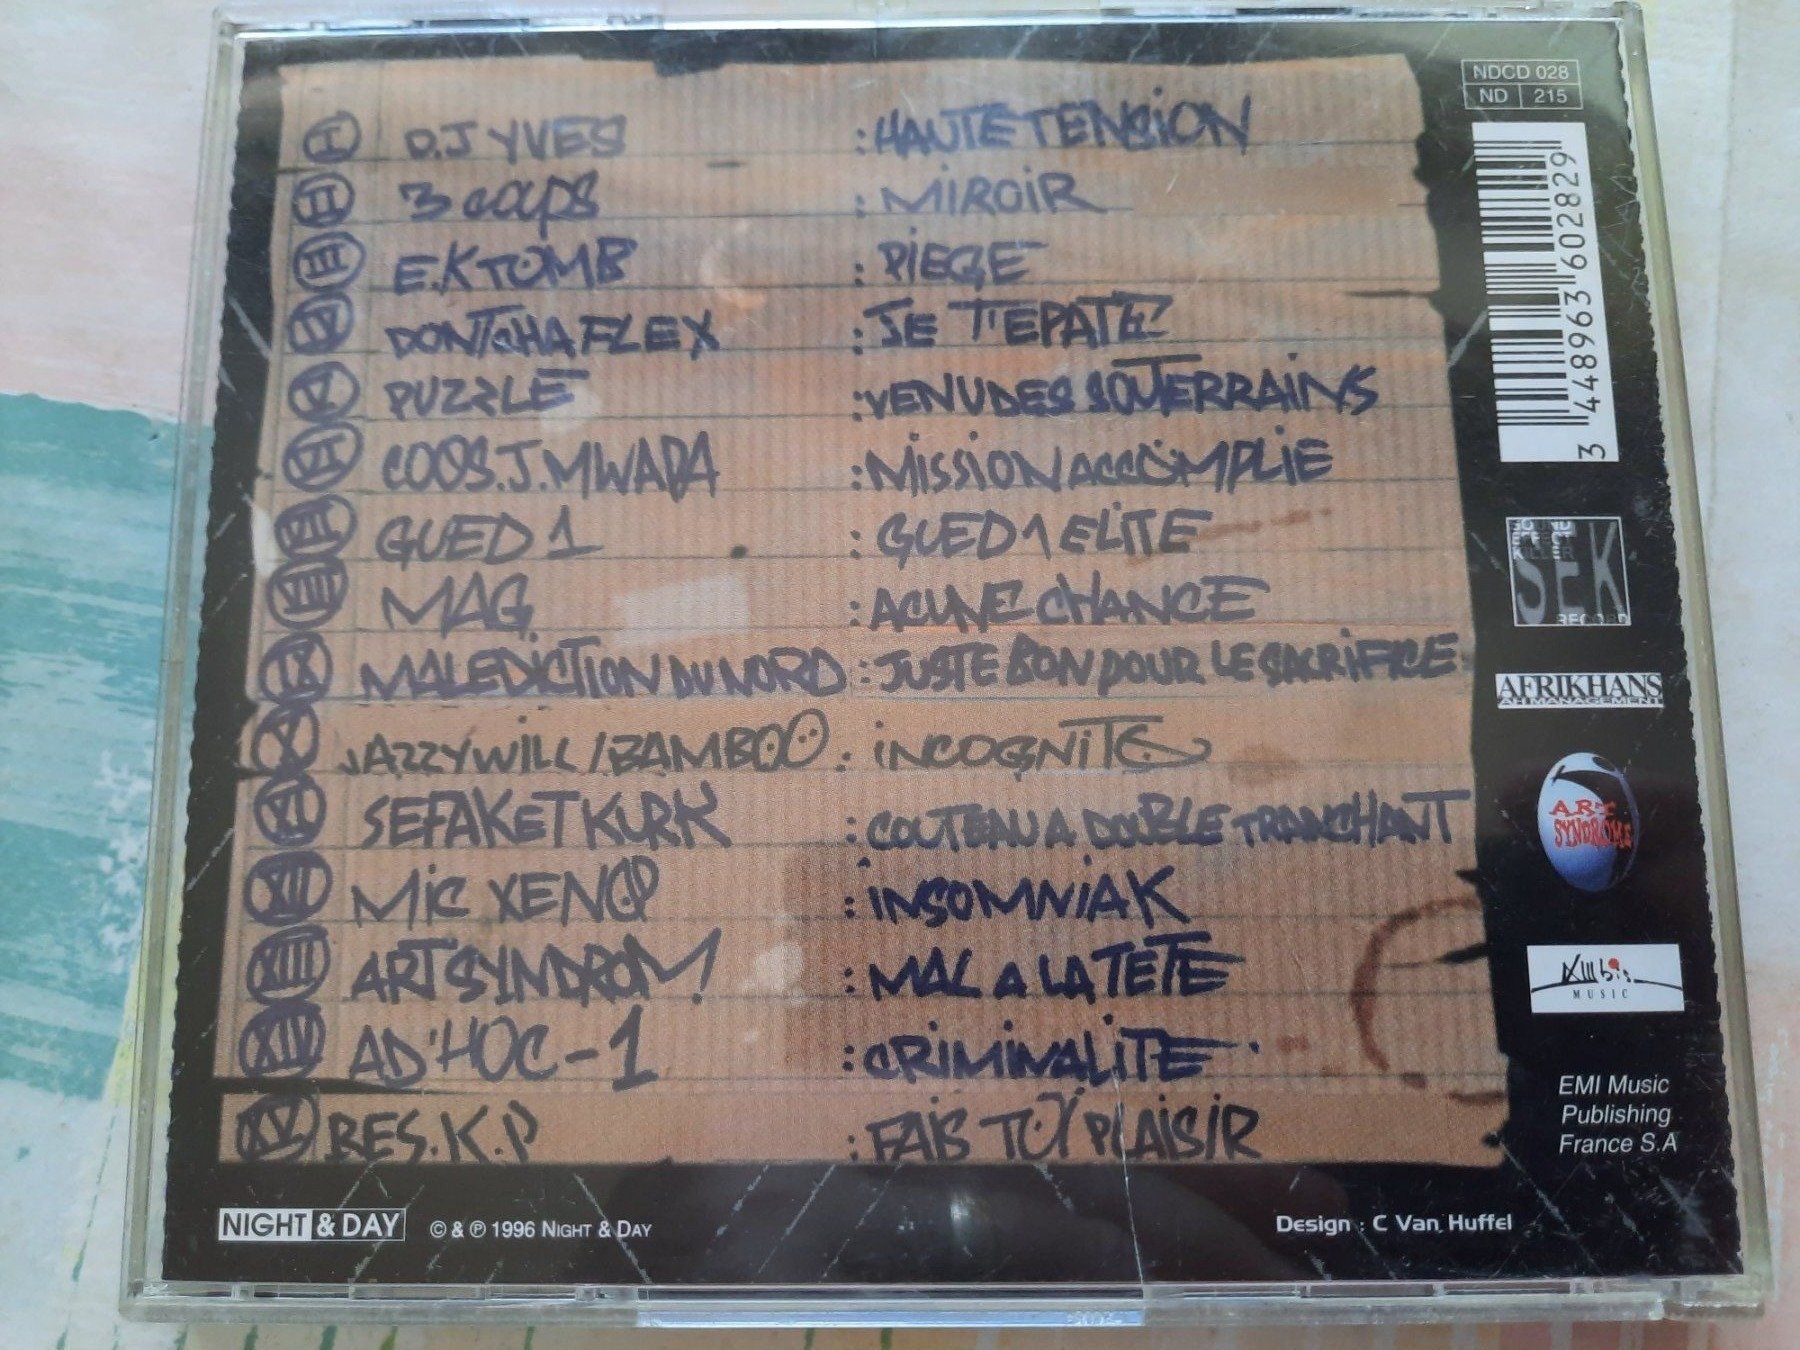 NDCD 028
ND 215
I D.J YVES : HAUTE TENSION
II 3 COUPS : MIROIR
III E.KTOMB : PIEGE
IV DONTCHA FLEX : JE T'EPATE
V PUZZLE : VENU DES SOUTERRAINS
VI COOS.J.MWADA : MISSION ACCOMPLIE
VII GUED 1 : GUED 1 ELITE
VIII MAG : AÇUNE CHANCE
IX MALEDICTION DU NORD : JUSTE BON POUR LE SACRIFICE
X JAZZY WILL / BAMBOO : INCOGNITO
XI SEFAK ET KURK : COUTEAU A DOUBLE TRANCHANT
XII MIC XENO : INSOMNIAK
XIII ART SYNDROM : MAL A LA TETE
XIV AD'HOC-1 : CRIMINALITE
XV BES.K.P : FAIS TOI PLAISIR
3 448963 602829
SOUND
KILLER
SEK
RECORD
AFRIKHANS
AH MANAGEMENT
ART
SYNDROME
XIII bis
MUSIC
EMI Music
Publishing
France S.A
NIGHT & DAY © & ℗ 1996 NIGHT & DAY
Design : C Van Huffel